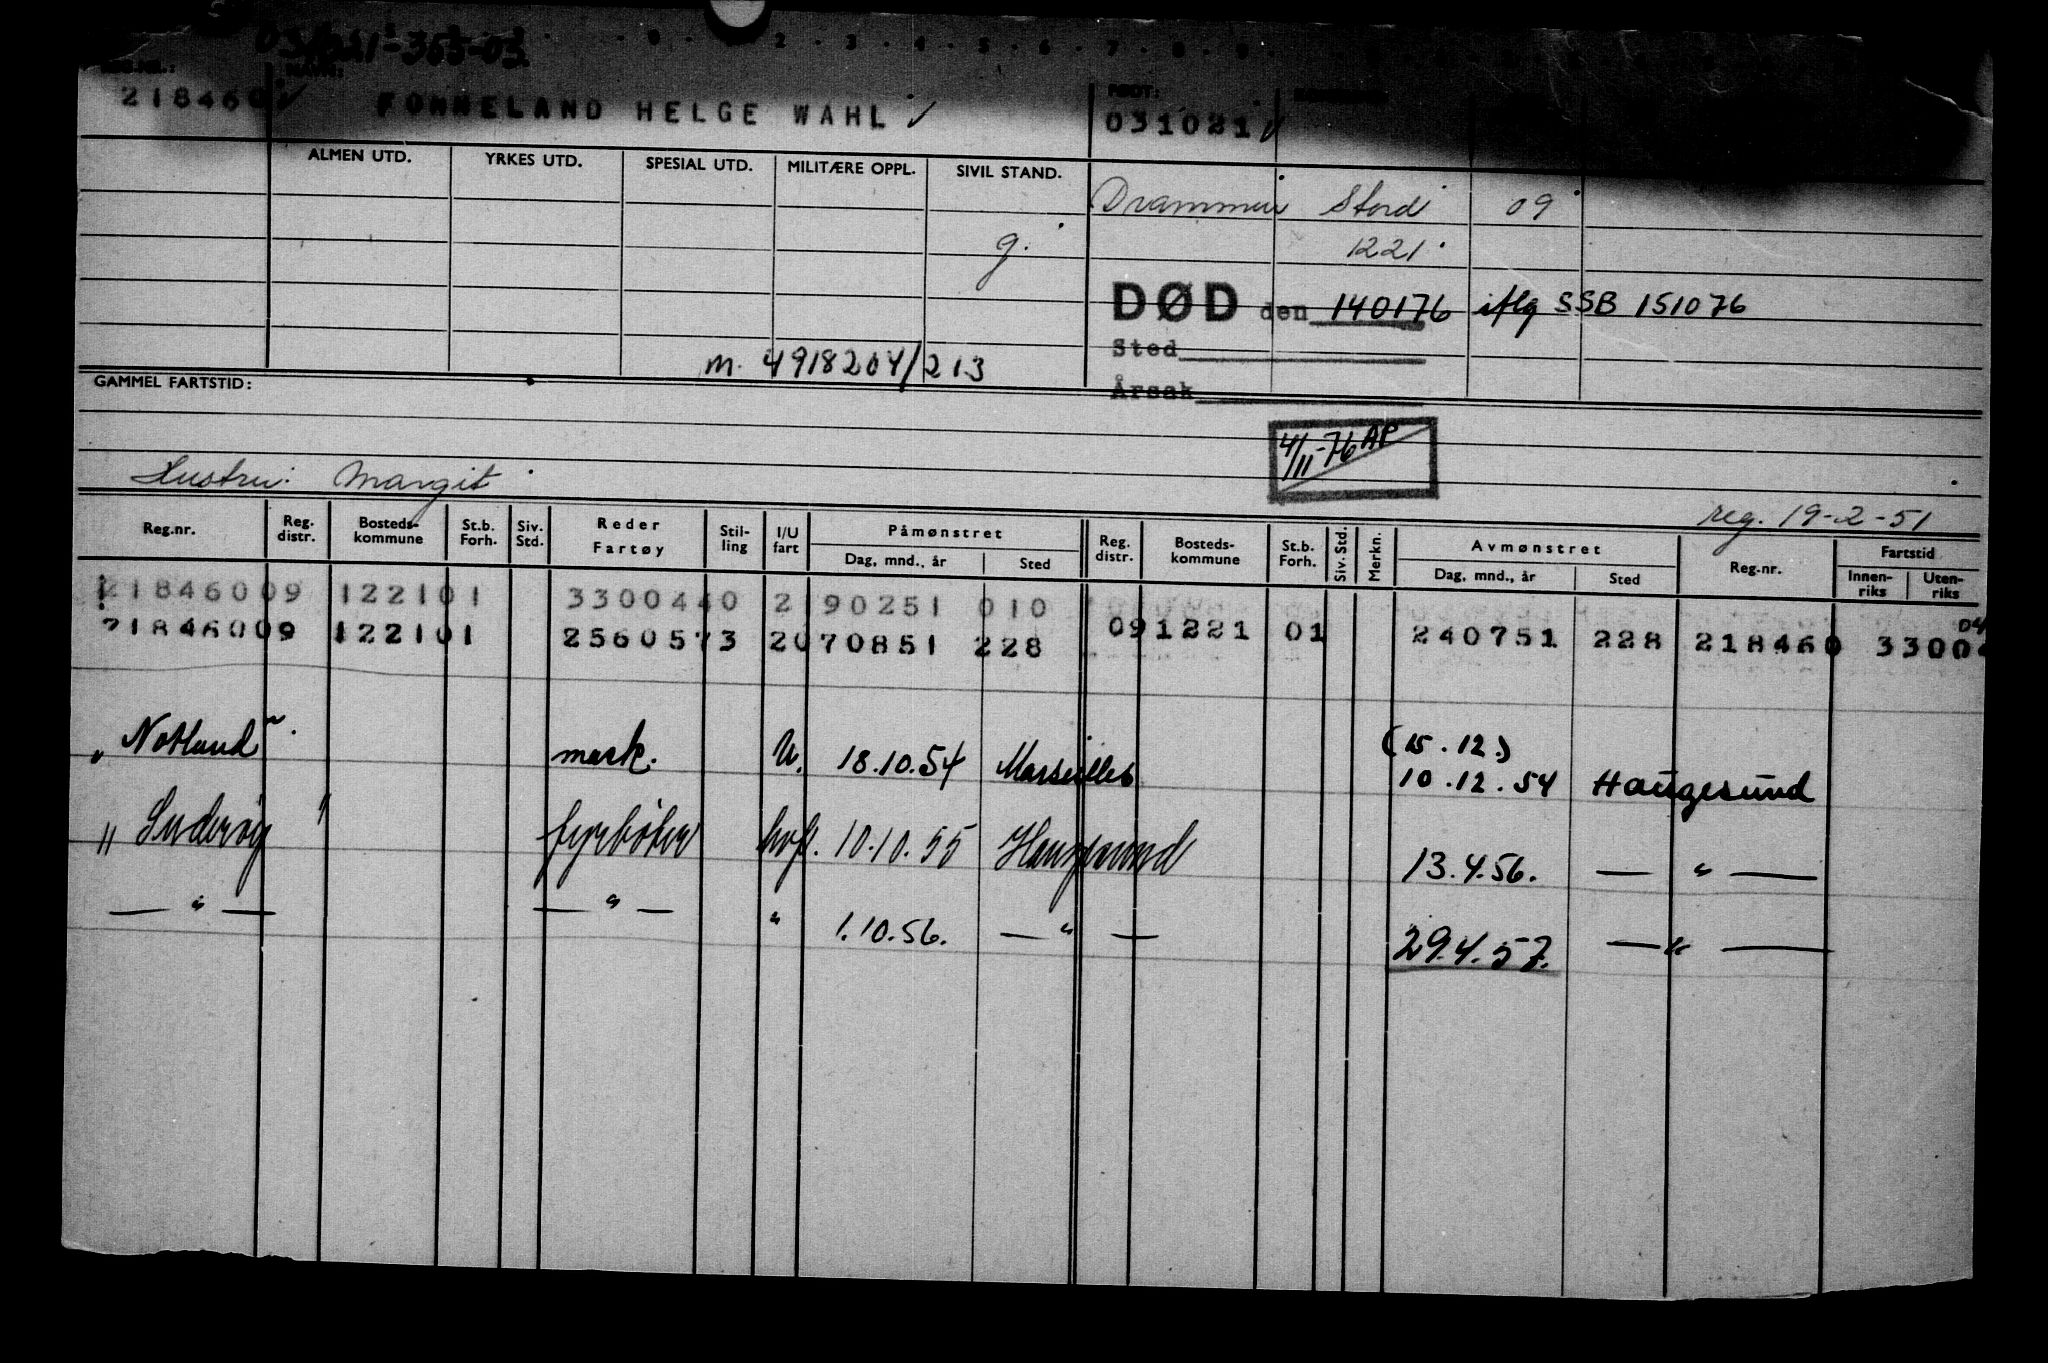 031021-365-03
NAVN: FØDT:
218460 FONNELAND HELGE WAHL 031021
ALMEN UTD. YRKES UTD. SPESIAL UTD. MILITÆRE OPPL. SIVIL STAND.
Drammen Stord 09
g. 1221
DØD den 140176 iflg SSB 151076
Sted
m. 4918204/213
GAMMEL FARTSTID: Årsak
4/11-76 AP
Hustru: Margit
reg. 19-2-51
Reg.nr. Reg. distr. Bosteds-kommune St.b. Forh. Siv. Std. Reder Fartøy Stil-ling I/U fart Påmønstret Dag, mnd., år Sted Reg. distr. Bosteds-kommune St.b. Forh. Siv. Std. Merkn. Avmønstret Dag, mnd., år Sted Reg.nr. Fartstid Innen-riks Uten-riks
21846009 122101 3300440 2190251 010
21846009 122101 2560573 2070851 228 091221 01 240751 228 218460 33004
04
(15.12.)
"Notland" mask. U. 18.10.54 Marseilles 10.12.54 Haugesund
"Suderøy" fyrbøter hvf. 10.10.55 Haugesund 13.4.56. — " —
— " — — " — " 1.10.56. — " — 29.4.57. — " —